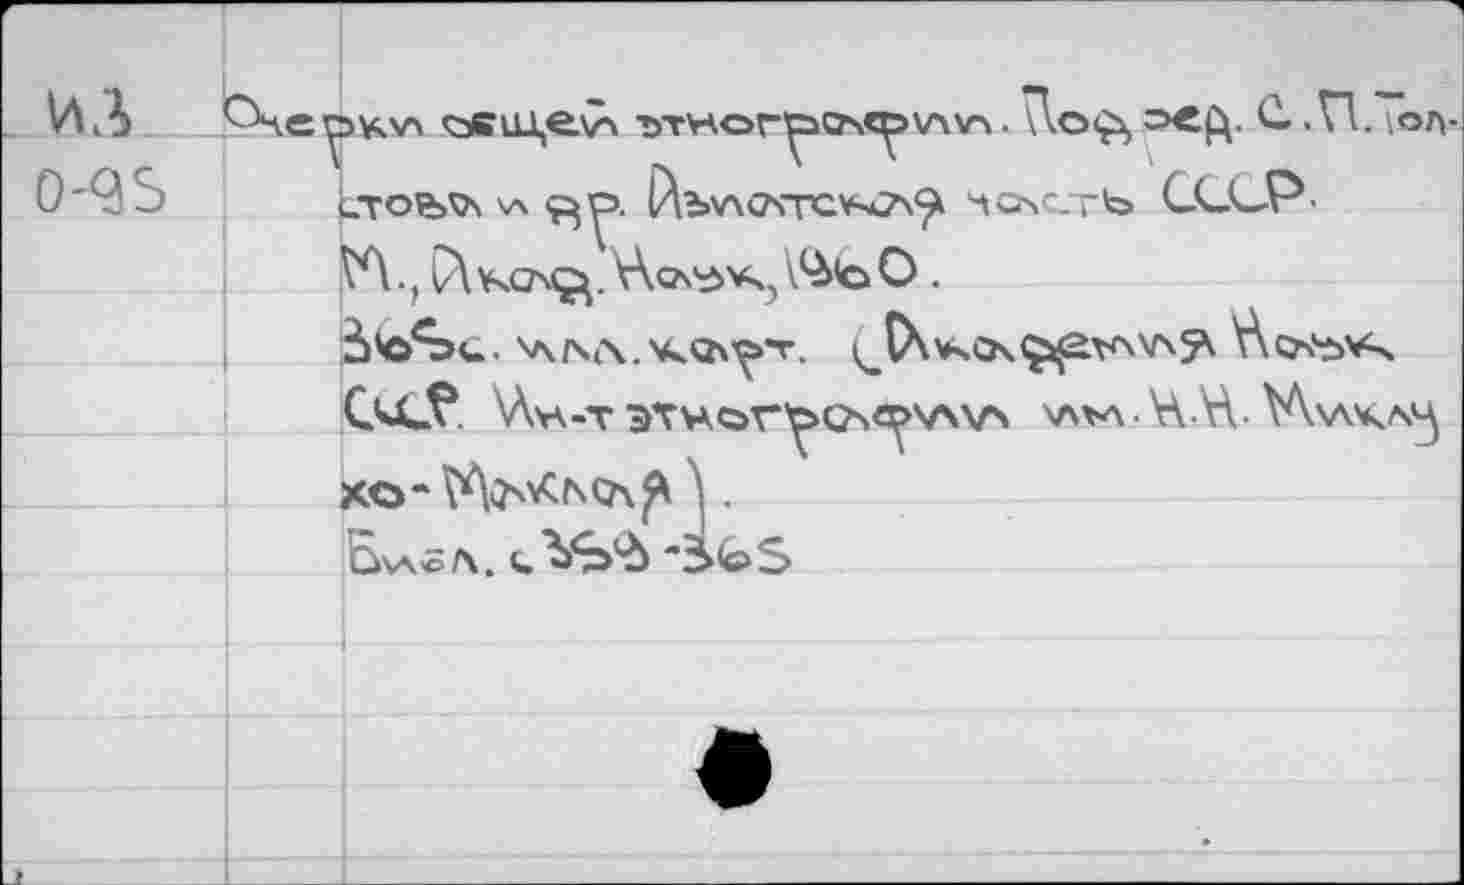 И.З Очерки общей этнографии. Под ред. С.П. Тол-
О-95 стова и др. Азиатская часть СССР.
М., Акад. Наук, 1960.
365с. илл. карт. (Академия Наук
СССР. Ин-т этнографии им. Н.Н. Миклу
хо-Маклая).
Библ. с 359-365